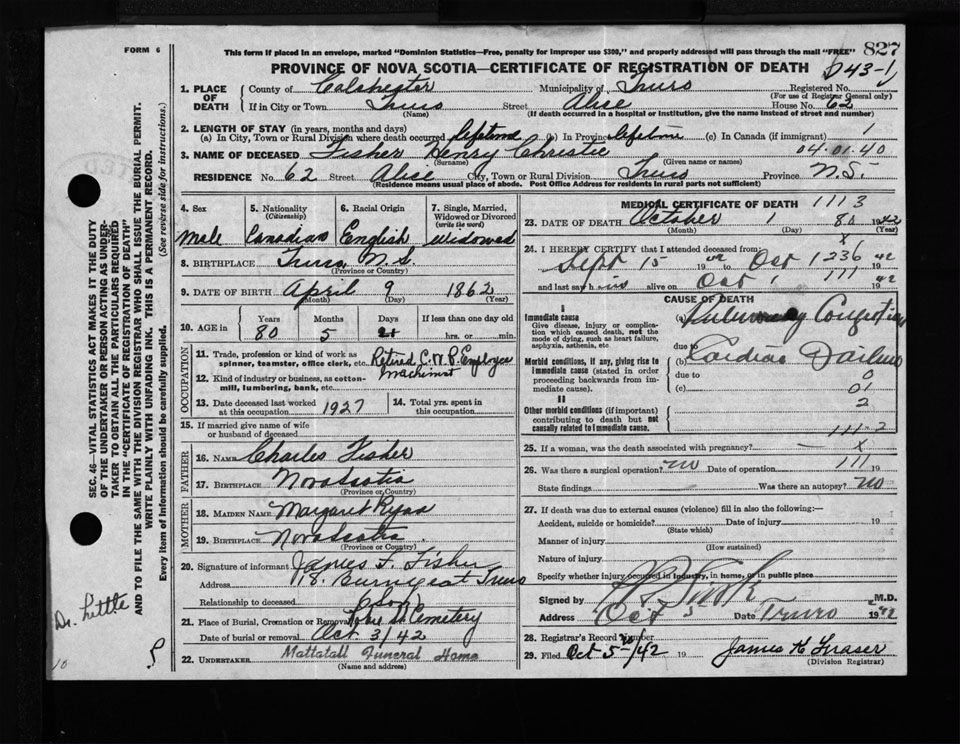 FORM 6
This form if placed in an envelope, marked "Dominion Statistics—Free, penalty for improper use $300," and properly addressed will pass through the mail "FREE" 827
PROVINCE OF NOVA SCOTIA—CERTIFICATE OF REGISTRATION OF DEATH
D43-1
1. PLACE OF DEATH
County of Colchester Municipality of Truro Registered No.
(For use of Registrar General only)
If in City or Town Truro Street Alice House No. 62
(Name) (If death occurred in a hospital or institution, give the name instead of street and number)
2. LENGTH OF STAY (in years, months and days)
(a) In City, Town or Rural Division where death occurred lifetime (b) In Province lifetime (c) In Canada (if immigrant) 1
3. NAME OF DECEASED Fisher Henry Christie 04.01.40
(Surname) (Given name or names)
RESIDENCE No. 62 Street Alice City, Town or Rural Division Truro Province N.S.
(Residence means usual place of abode. Post Office Address for residents in rural parts not sufficient)
4. Sex
Male
5. Nationality (Citizenship)
Canadian
6. Racial Origin
English
7. Single, Married, Widowed or Divorced (write the word)
Widowed
8. BIRTHPLACE Truro, N.S.
(Province or Country)
9. DATE OF BIRTH April 9 1862
(Month) (Day) (Year)
10. AGE in
Years Months Days If less than one day old
80 5 hrs. or min.
OCCUPATION
11. Trade, profession or kind of work as spinner, teamster, office clerk, etc. Retired C.N.R. Employee
Machinist
12. Kind of industry or business, as cotton-mill, lumbering, bank, etc.
13. Date deceased last worked at this occupation 1927
14. Total yrs. spent in this occupation
15. If married give name of wife or husband of deceased
FATHER
16. NAME Charles Fisher
17. BIRTHPLACE Nova Scotia
(Province or Country)
MOTHER
18. MAIDEN NAME Margaret Ryan
19. BIRTHPLACE Nova Scotia
(Province or Country)
20. Signature of informant James F. Fisher
Address 18 Truro
Relationship to deceased (Son)
21. Place of Burial, Cremation or Removal St Cemetery
Date of burial or removal Oct 3/42
22. UNDERTAKER Mattatall Funeral Home
(Name and address)
MEDICAL CERTIFICATE OF DEATH 1113
23. DATE OF DEATH October 1 80 1942
(Month) (Day) (Year)
x
24. I HEREBY CERTIFY that I attended deceased from:
Sept 15 1942 to Oct 1 236 42
and last saw him alive on Oct 1 111 1942
CAUSE OF DEATH
I
Immediate cause
Give disease, injury or complication which caused death, not the mode of dying, such as heart failure, asphyxia, asthenia, etc.
(a) Pulmonary Congestion
due to
Morbid conditions, if any, giving rise to immediate cause (stated in order proceeding backwards from immediate cause).
(b) Cardiac Failure
due to 0
(c) 01
II
Other morbid conditions (if important) contributing to death but not causally related to immediate cause.
2
111-2
25. If a woman, was the death associated with pregnancy? x
26. Was there a surgical operation? no Date of operation 111 19
State findings Was there an autopsy? no
27. If death was due to external causes (violence) fill in also the following:—
Accident, suicide or homicide? Date of injury 19
(State which)
Manner of injury
(How sustained)
Nature of injury
Specify whether injury occurred in industry, in home, or in public place
Signed by M.D.
Address Truro Date Oct 3 1942
28. Registrar's Record Number
29. Filed Oct 5-/42 19 James H Fraser
(Division Registrar)
SEC. 46—VITAL STATISTICS ACT MAKES IT THE DUTY
OF THE UNDERTAKER OR PERSON ACTING AS UNDER-
TAKER TO OBTAIN ALL THE PARTICULARS REQUIRED
IN THE "CERTIFICATE OF REGISTRATION OF DEATH"
AND TO FILE THE SAME WITH THE DIVISION REGISTRAR WHO SHALL ISSUE THE BURIAL PERMIT.
WRITE PLAINLY WITH UNFADING INK. THIS IS A PERMANENT RECORD.
Every item of Information should be carefully supplied. (See reverse side for instructions.)
Dr. Little
10